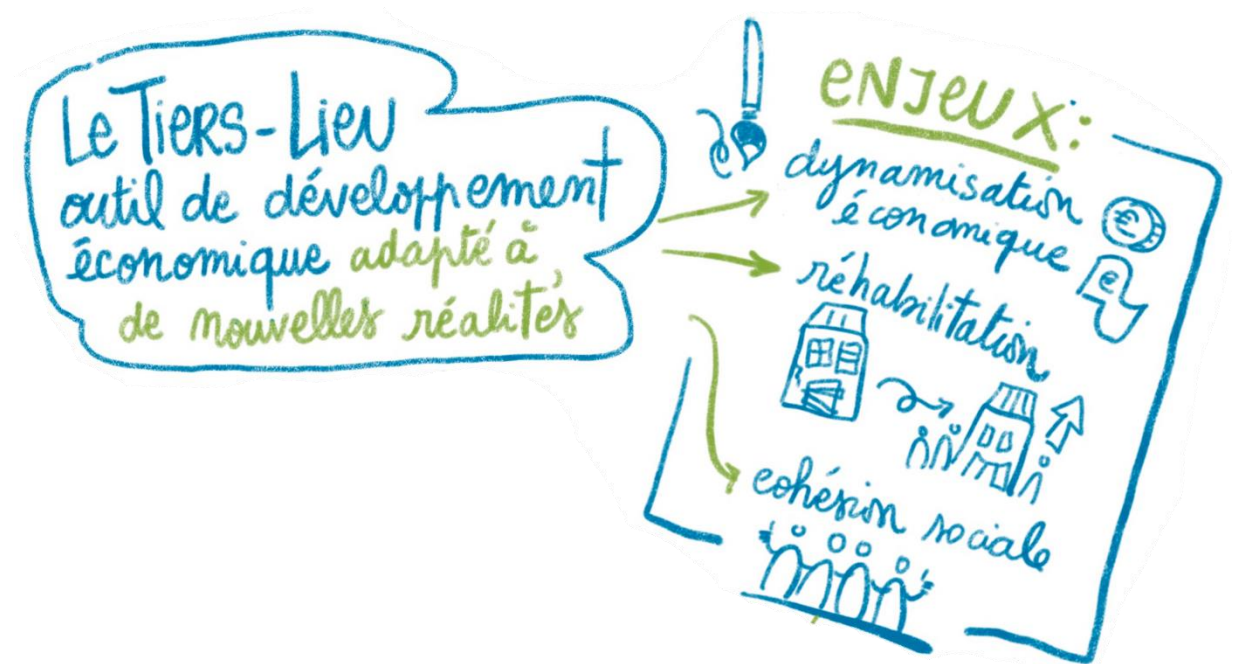 Le Tiers-Lieu
outil de développement
économique adapté à
de nouvelles réalités
ENJEUX:
dynamisation
économique
€
€
réhabilitation
cohésion sociale